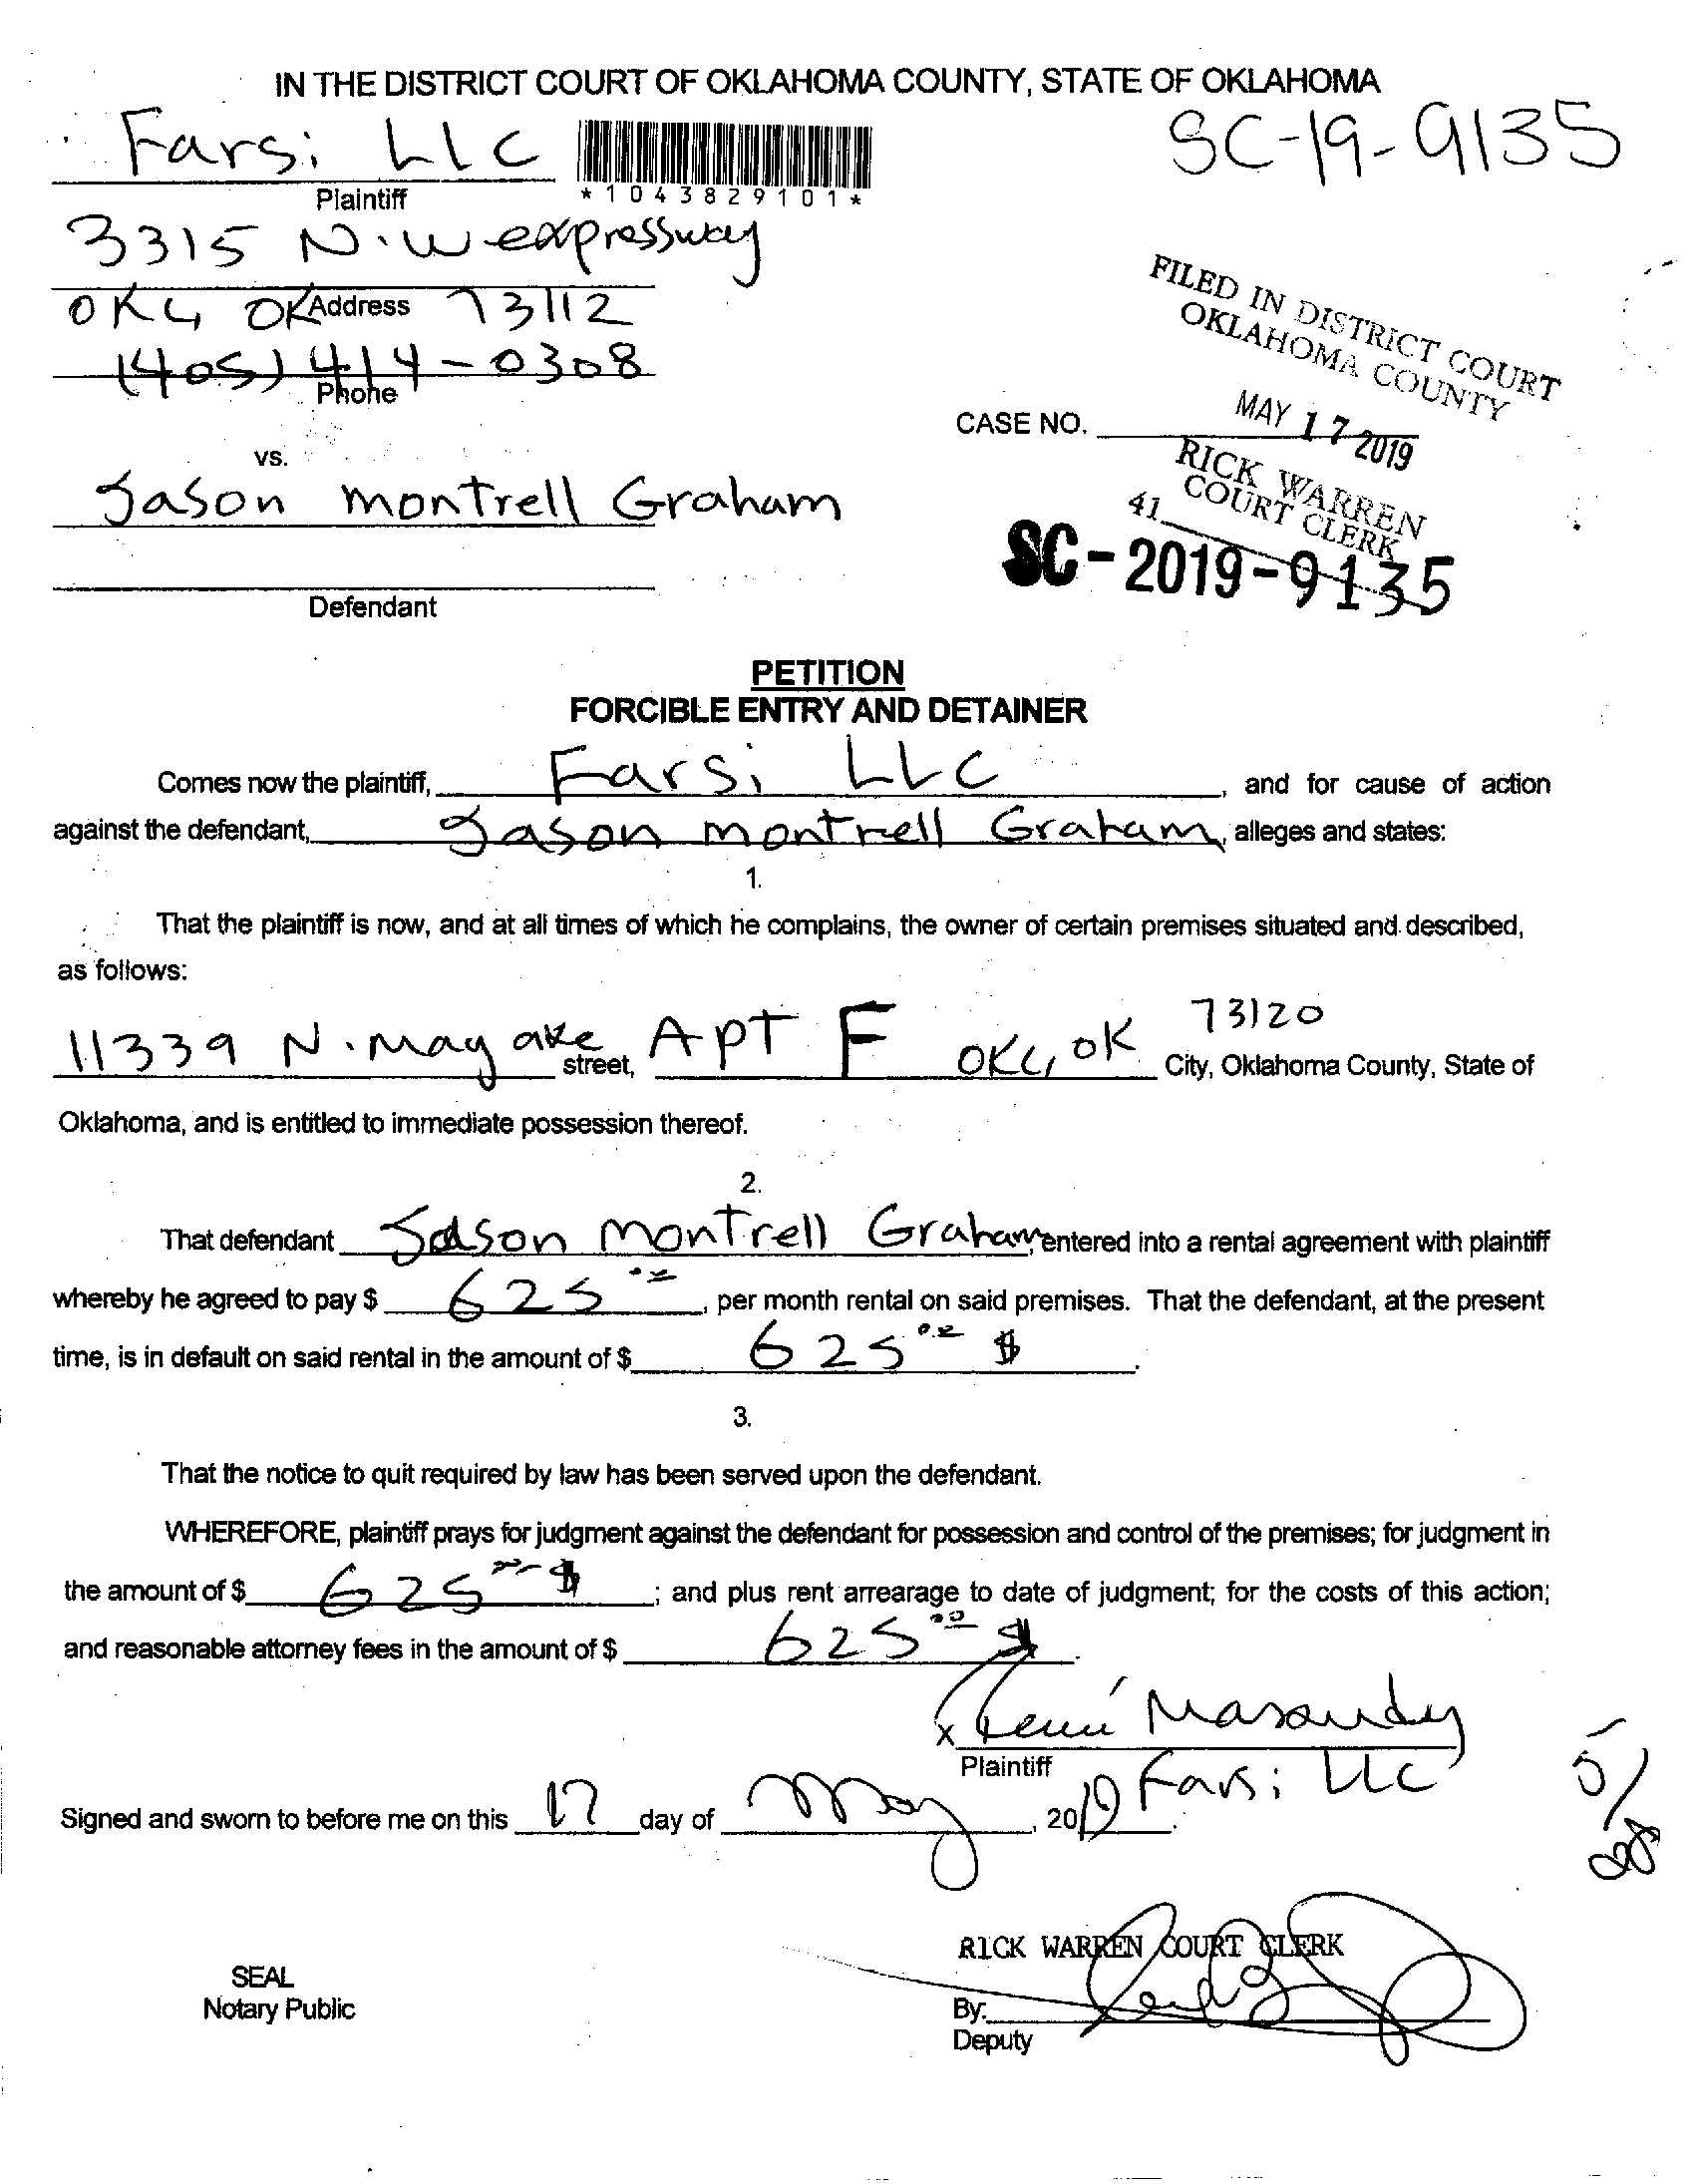 IN THE DISTRICT COURT OF OKLAHOMA COUNTY, STATE OF OKLAHOMA
Farsi LLC
SC-19-9135
Plaintiff
*1043829101*
3315 N.W expressway
OKC OK Address 73112
(405) 414-0308
Phone
FILED IN DISTRICT COURT
OKLAHOMA COUNTY
MAY 17 2019
RICK WARREN
COURT CLERK
41
CASE NO.
SC-2019-9135
vs.
Jason montrell Graham
Defendant
PETITION
FORCIBLE ENTRY AND DETAINER
Comes now the plaintiff, Farsi LLC, and for cause of action
against the defendant, Jason montrell Graham, alleges and states:
1.
That the plaintiff is now, and at all times of which he complains, the owner of certain premises situated and described,
as follows:
11339 N. May ave street, APT F OKC, OK 73120 City, Oklahoma County, State of
Oklahoma, and is entitled to immediate possession thereof.
2.
That defendant Jason montrell Graham, entered into a rental agreement with plaintiff
whereby he agreed to pay $ 625 00, per month rental on said premises. That the defendant, at the present
time, is in default on said rental in the amount of $ 625 00 $.
3.
That the notice to quit required by law has been served upon the defendant.
WHEREFORE, plaintiff prays for judgment against the defendant for possession and control of the premises; for judgment in
the amount of $ 625 00 $; and plus rent arrearage to date of judgment; for the costs of this action;
and reasonable attorney fees in the amount of $ 625 00 $.
x
Plaintiff Farsi LLC
Signed and sworn to before me on this 17 day of May, 2019.
5/28
RICK WARREN COURT CLERK
SEAL
Notary Public
By:
Deputy